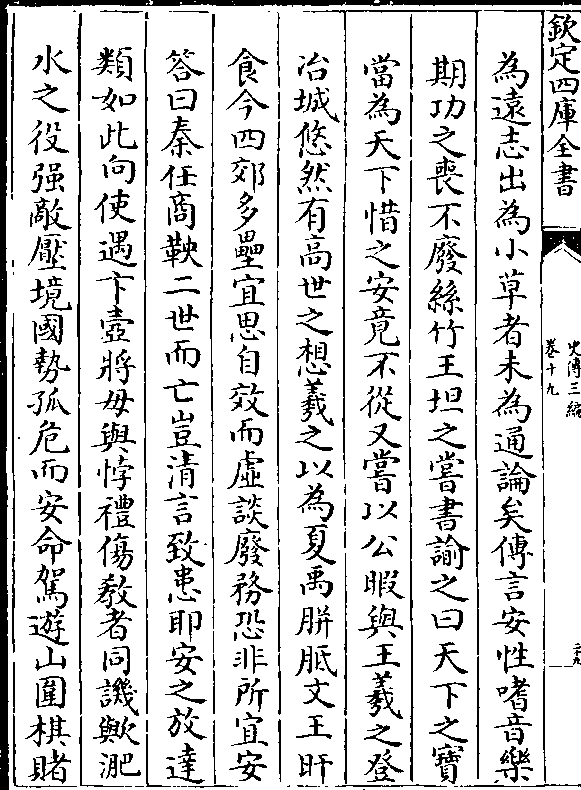 欽定四庫全書
史傳三編
卷十九
為遠志出為小草者未為通論矣傳言安性嗜音樂
期功之喪不廢絲竹王坦之嘗書諭之曰天下之寶
當為天下惜之安竟不從又嘗以公暇與王羲之登
冶城悠然有高世之想羲之以為夏禹胼胝文王旰
食今四郊多壘宜思自效而虛談廢務恐非所宜安
答曰秦任商鞅二世而亡豈清言致患耶安之放達
類如此向使遇卞壼將毋與悖禮傷教者同譏歟淝
水之役强敵壓境國勢孤危而安命駕遊山圍棋賭